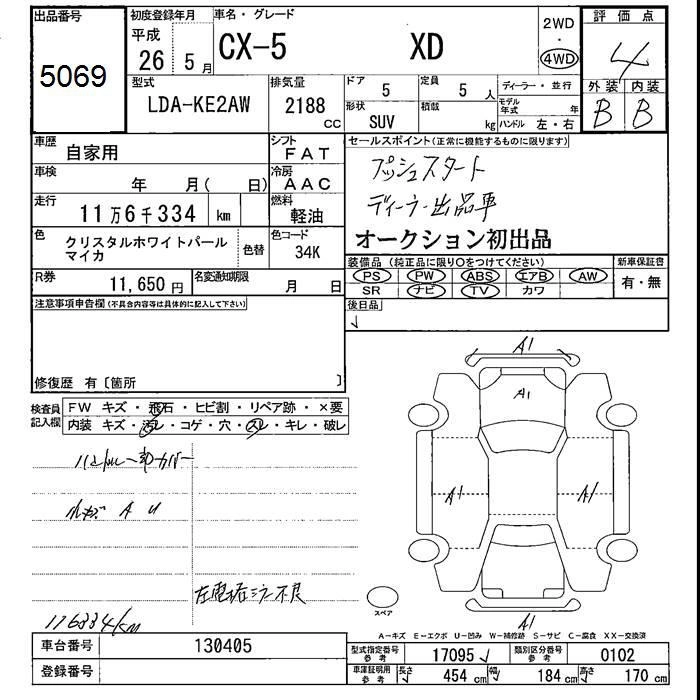 出品番号
5069
初度登録年月
平成
26 5月
車名・グレード
CX-5 XD
2WD
・
4WD
評価点
4
外装 内装
B B
型式
LDA-KE2AW
排気量
2188
cc
ドア
5
定員
5人
ディーラー・並行
形状
SUV
積載
kg
モデル年式
年
ハンドル 左・右
車歴
自家用
シフト
FAT
セールスポイント(正常に機能するものに限ります)
プッシュスタート
ディーラー出品車
オークション初出品
車検
年 月( 日)
冷房
AAC
走行
11万6千334 km
燃料
軽油
色
クリスタルホワイトパール
マイカ
色替
色コード
34K
装備品(純正品に限り○をつけてください)
PS PW ABS エアB AW
SR ナビ TV カワ
新車保証書
有・無
R券
11,650円
名変通知期限
月 日
後日品
注意事項申告欄(不具合内容等は具体的に記入して下さい)
修復歴 有〔箇所 〕
検査員
記入欄
FW キズ・飛石・ヒビ割・リペア跡・×要
内装 キズ・汚レ・コゲ・穴・スレ・キレ・破レ
A1
A1
A1
A1
A1
A U
116334km
スペア
A－キズ E－エクボ U－凹み W－補修跡 S－サビ C－腐食 XX－交換済
車台番号
130405
登録番号
型式指定番号
参考
17095
類別区分番号
参考
0102
車庫証明用
参考
長さ
454cm
幅
184cm
高さ
170cm